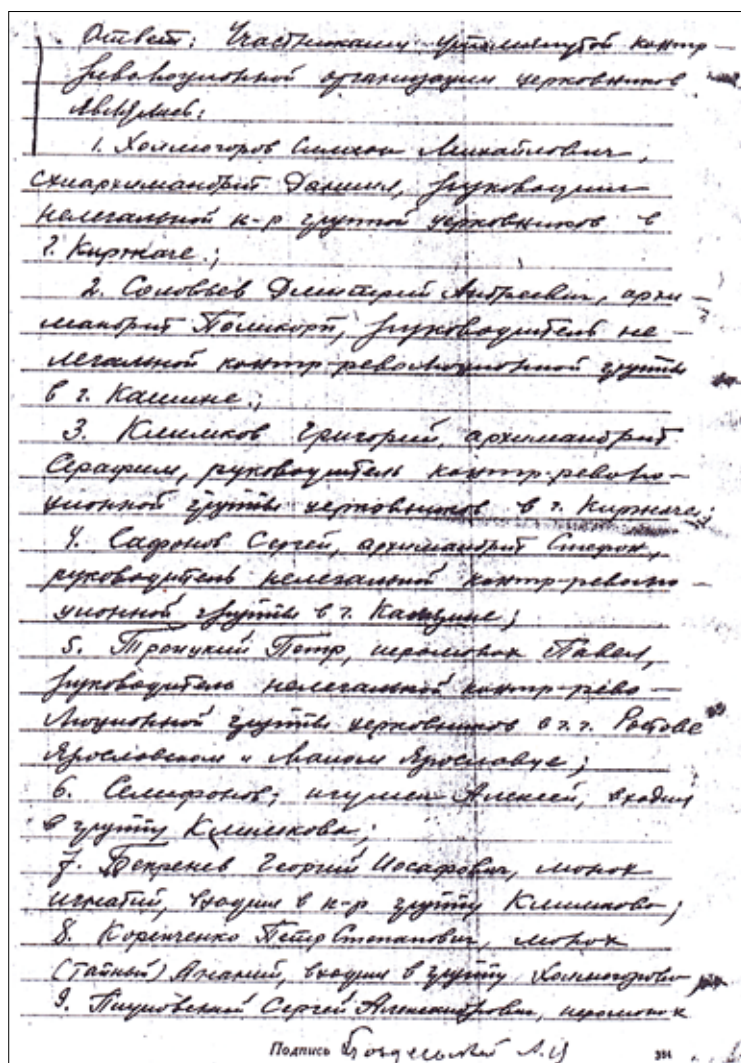 Ответ: Участниками упомянутой контр-
революционной организации церковников
являлись:
1. Холмогоров Симеон Михайлович,
схиархимандрит Даниил, руководил
нелегальной к-р группой церковников в
г. Киржаче;
2. Соловьев Дмитрий Андреевич, архи-
мандрит Поликарп, руководитель не-
легальной контр-революционной группы
в г. Кашине;
3. Климков Григорий, архимандрит
Серафим, руководитель контр-револю-
ционной группы церковников в г. Киржаче;
4. Сафонов Сергей, архимандрит Стефан,
руководитель нелегальной контр-револю-
ционной группы в г. Калуге;
5. Троицкий Петр, иеромонах Павел,
руководитель нелегальной контр-рево-
люционной группы церковников в г.г. Ростове
Ярославском и Малом Ярославце;
6. Селифонов, игумен Алексей, входил
в группу Климкова;
7. Бекренев Георгий Иосафович, монах
Игнатий, входил в к-р группу Климкова;
8. Корниченко Петр Степанович, монах
(тайный) Ананий, входил в группу Холмогорова
9. Сергей Александрович, иеромонах
Подпись